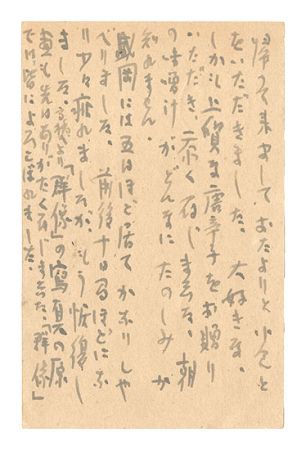 帰つて来まして、おたよりと小包と
をいただきました、大好きな、
しかも上質な唐辛子をお贈り
いただき、忝く存じました、朝
の味噌汁がどんなにたのしみか
知れません、
盛岡には五日ほど居てかなりしや
べりました、前後十日ほどにな
り少々疲れましたがもう恢復し
ました、「群像」の寫眞の原
畫も先はありがたく存じました、「群像」
では皆によろこばれました、